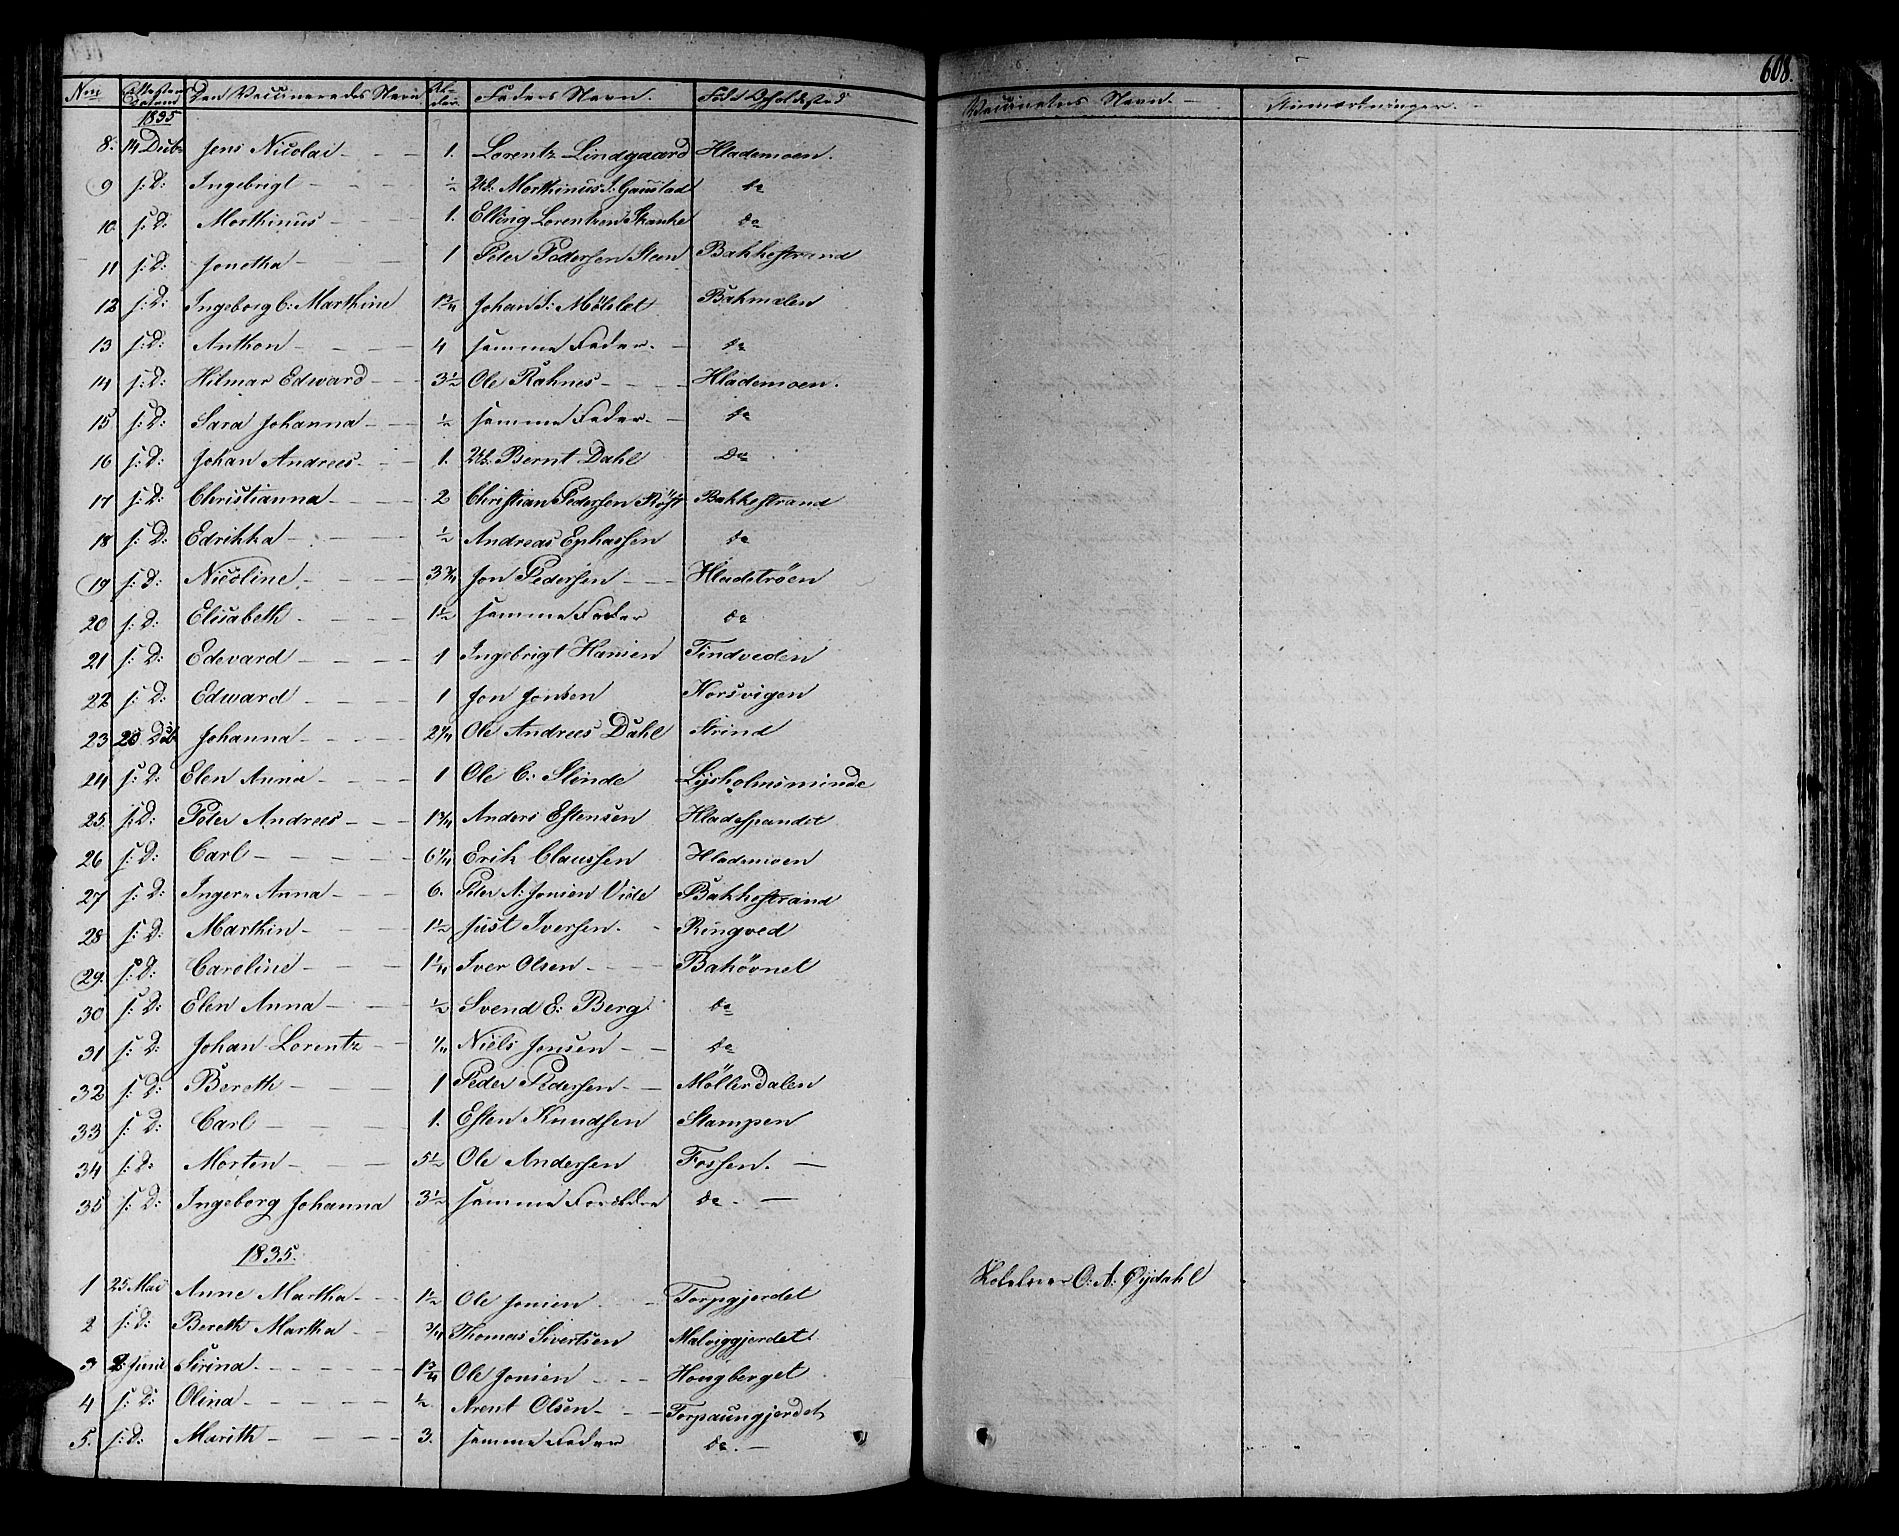 608.
Nrs Attestens Datum Den Vaccineredes Navn Alder Faders Navn. Födt Opholdssted Vaccinateurs Navn. Anmærkninger.
1835
8. 14 Dcbr Jens Nicolai 1. Lorentz Lindgaard Hlademoen.
9 s: D: Ingebrigt ½ Morthinus J: Gaustad do
10. s: D: Morthinus 1. Elling Lorentzen Skanke do
11 s: D: Jonetha 1 Peter Pedersen Steen Bakkestrand
12 s: D: Ingeborg C: Marthine Johan J: Möhlet Bakmalen
13 s: D: Anthon 4 samme Fader. do
14 s: D: Hilmar Edward 3½ Ole Rahnes Hlademoen.
15 s: D: Sara Johanna ½ samme Fader. do
16 s: D: Johan Andrees 1. Bernt Dahl Do
17 s: D: Christianna 2 Christian Pedersen Bakkestrand
18 s: D: Edrikka ½ Andreas Ephassen do
19 s: D: Nicoline 3¾ Jon Pedersen Hladetröen
20 s: D: Elisabeth 1½ samme Fader do
21 s: D: Edevard 1 Ingebrigt Hansen Tindveden
22 s: D: Edward 1 Jon Jonsen Korsvigen
23 20 Dcbr Johanna 2¼ Ole Andrees Dahl Strind
24 s: D: Elen Anna 1 Ole C: Slinde Lysholmsminde
25. s: D: Peter Andrees 1¾ Anders Estensen Hladespandet
26 s: D: Carl 6¼ Erik Claussen Hlademoen
27 s: D: Inger Anna 6. Peter A: Jonsen Viole Bakkestrand
28 s: D: Marthin 1½ Just Iversen. Ringved
29. s: D: Caroline 1¼ Iver Olsen Bakövnel
30 s: D: Elen Anna ½ Svend E: Berg do
31 s: D: Johan Lorentz ¼ Niels Jonsen do
32 s: D: Bereth 1 Peder Pedersen Möllerdalen
33 s: D: Carl 1. Esten Knudsen Stampen
34 s: D: Morten 5½ Ole Andersen Fossen.
35 s: D: Ingeborg Johanna 3½ samme Forældre do.
1835.
1 25 Mai Anne Martha 1½ Ole Jonsen Torpgjerdet Klokker O: A: Öydahl
2 s: D: Bereth Martha ¾ Thomas Sivertsen Malviggjerdet
3 2 Junii Sirina 1¾ Ole Jonsen Hougberget
4 s: D: Olina ½ Arent Olsen Torpaungjerdet
5. s: D: Marith 3. samme Fader do.